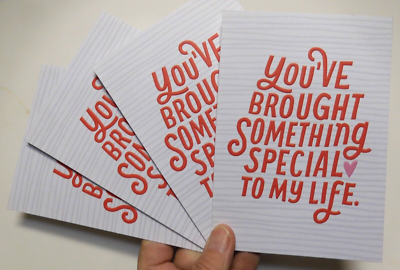 You've
BROUGHT
SOMEThing
SPECIAL
TO MY LiFE.
You've
BROUGHT
SOMET
SPECI
TO
You
BRO
SOME
SPE
TO